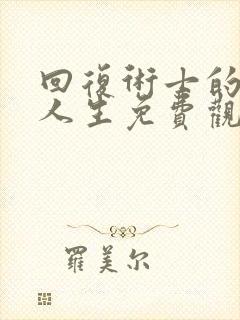 回復術士的
人生免費觀
羅美尔